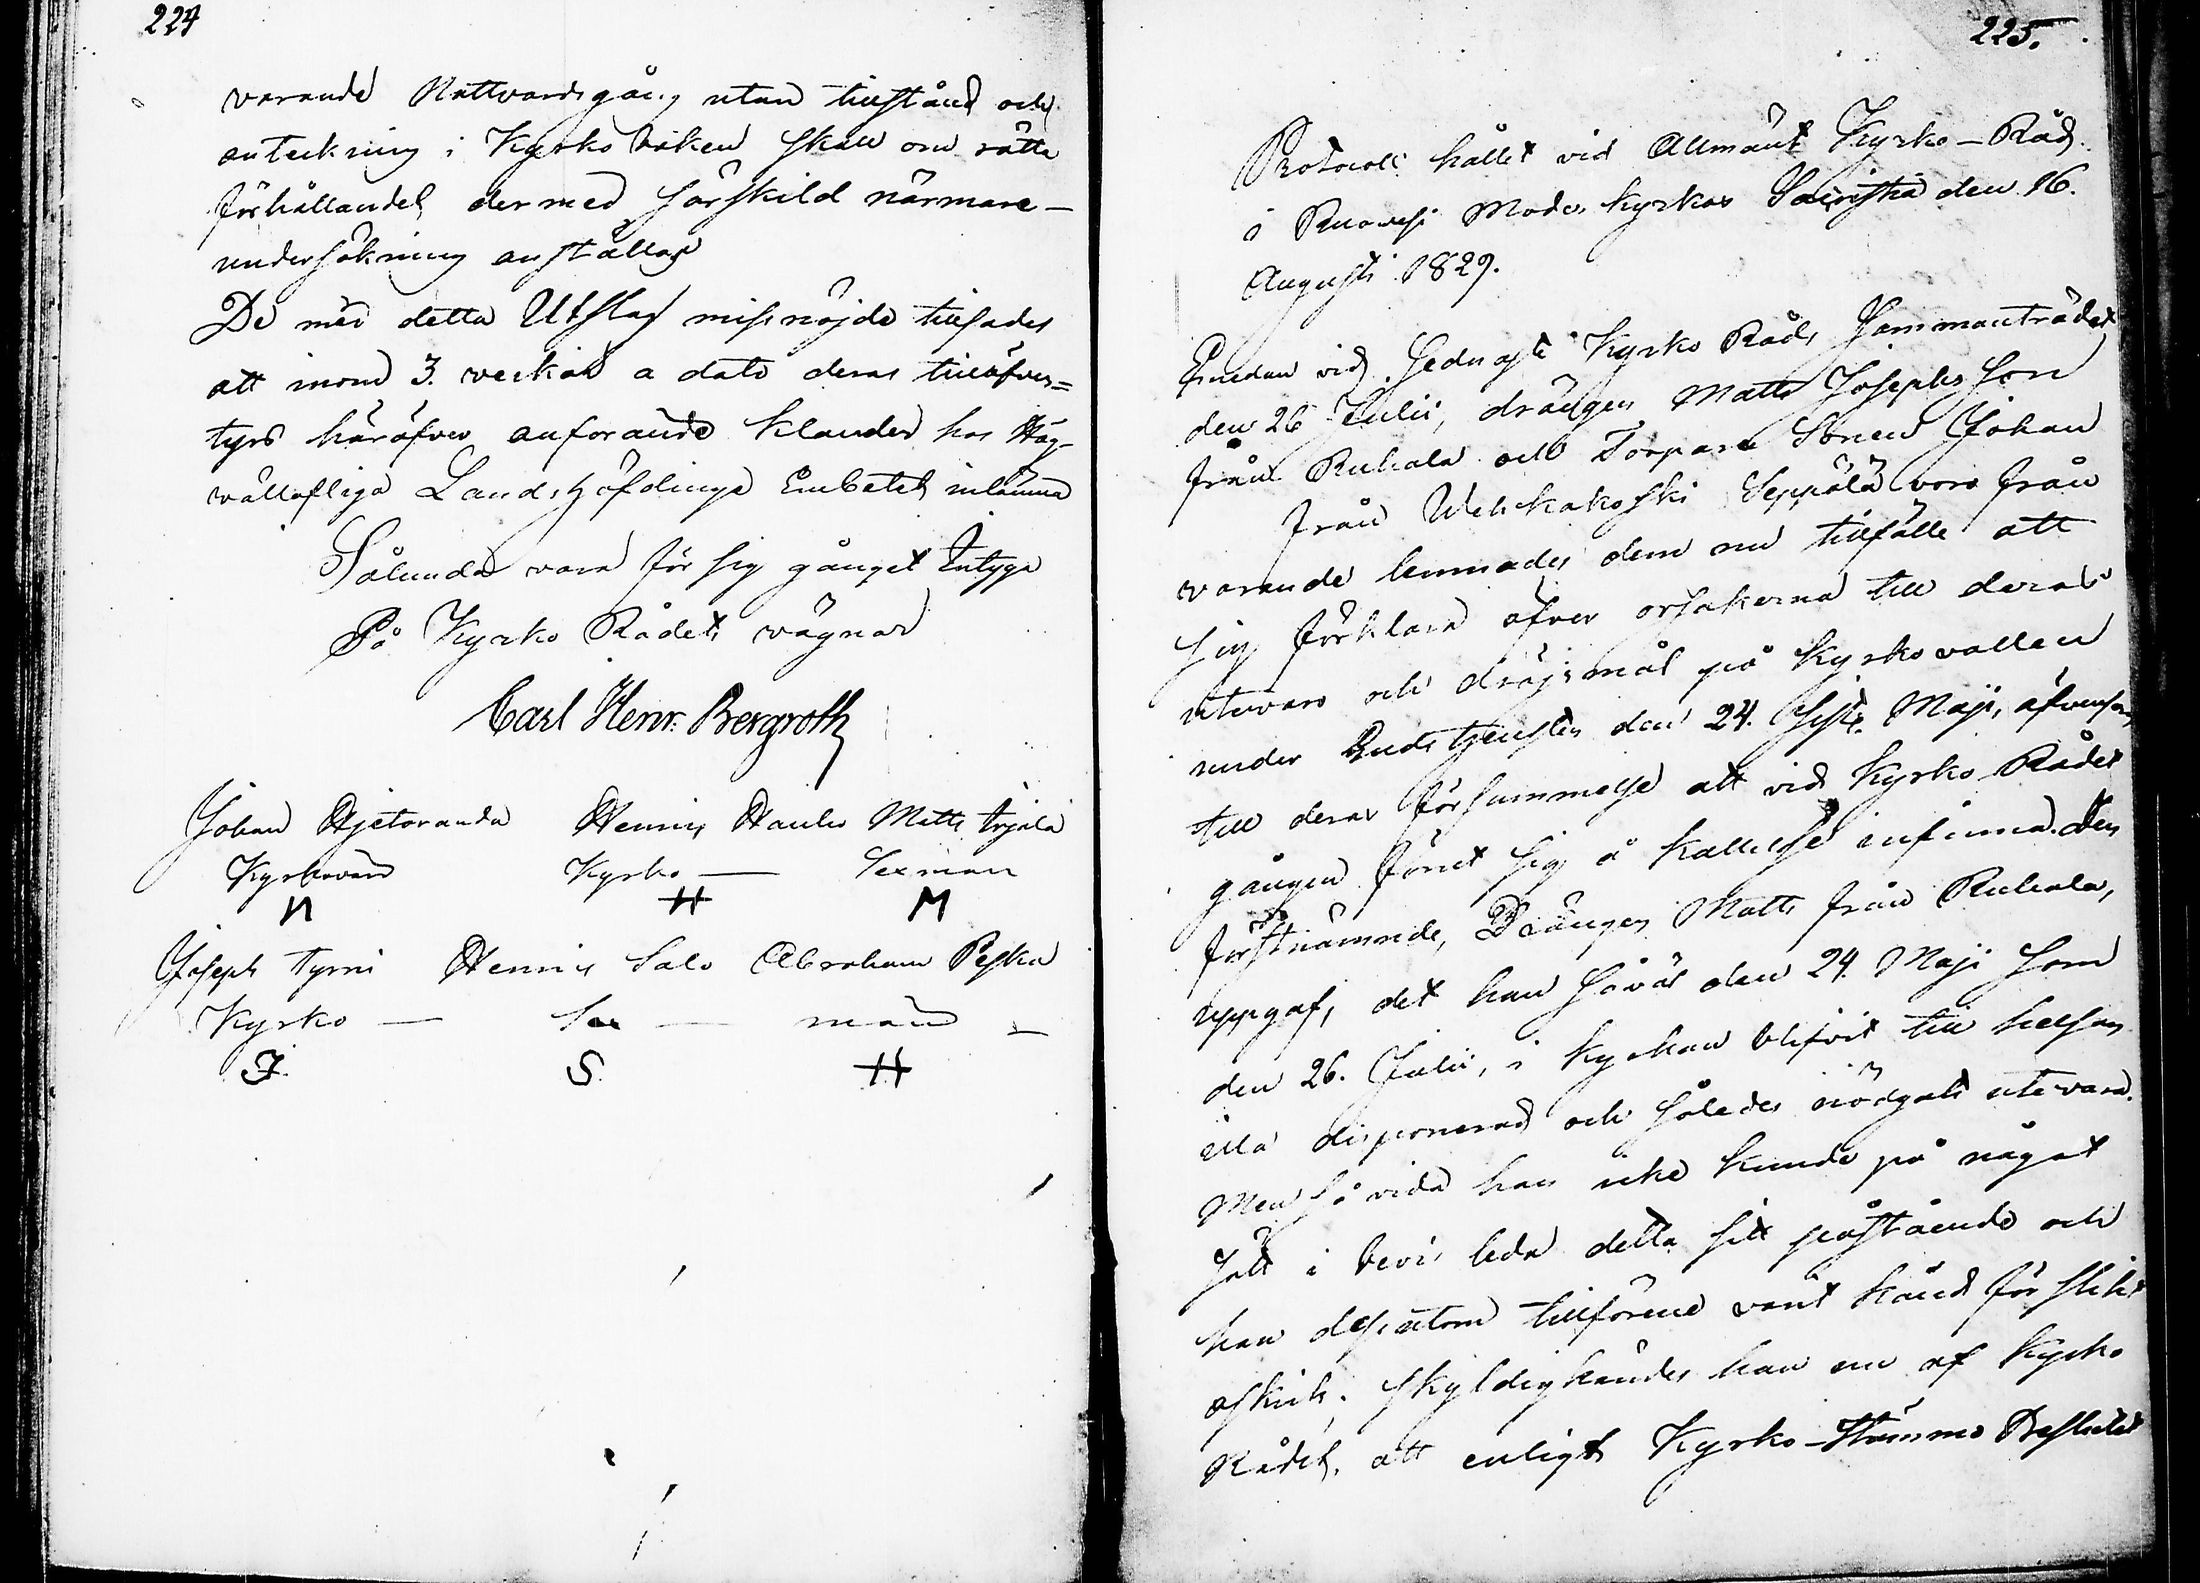 224
varande Nattvardsgång utan tillstånd och
anteckning i Kyrko boken skall om rätta
förhållandet dermed särskild närmare
undersökning anställas
De med detta Utslag missnöjde tillsades
att inom 3. veckor a dato deras tilläfven=
tyrs häröfver anförande klander hos Hög-
vällofliga Landshöfdinge Embetet inlämna
Sålunda vara för sig gånget Intyga
På Kyrko Rådets vägnar
Carl Henr. Bergroth
Johan Hjetoranda Henrik Hauho Matts
Kyrkovärd Kyrko — Sexman
H M
Joseph Tyrni Henrik Salo Abraham Peska
Kyrko — Sex — män —
S. H
225.
Protocoll hållet vid Allmänt Kyrko-Råd
i Ruowesi Moder kyrkas Sacristia den 16.
Augusti 1829.
Emedan vid sednaste Kyrko Råds Sammanträdet
den 26 Julii, drängen Matts Josephsson
från Ruhala och Torpare Sonen Johan
från Wehkakoski Seppälä voro från
varande lemnades dem nu tillfälle att
sig förklara öfver orsakerna till deras
utevaro och dröjsmål på Kyrkovallen
under Gudstjensten den 24. sistl. Maji, äfvensom
till deras försummelse att vid Kyrko Rådet
gången förut sig å kallelse infinna. Den
förstnämnde, Drängen Matts från Ruhala,
uppgaf, det han såväl den 24. Maji som
den 26. Julii, i kyrkan blifvit till helsan
illa disponerad och således nödgats utevara.
Men så vida han icke kunde på något
sätt i bevis leda detta sitt påstående och
han dessutom tillförene varit känd för slikt
oskick, skyldigkändes han nu af Kyrko
Rådet, att enligt Kyrko-Stämmo Beslutet